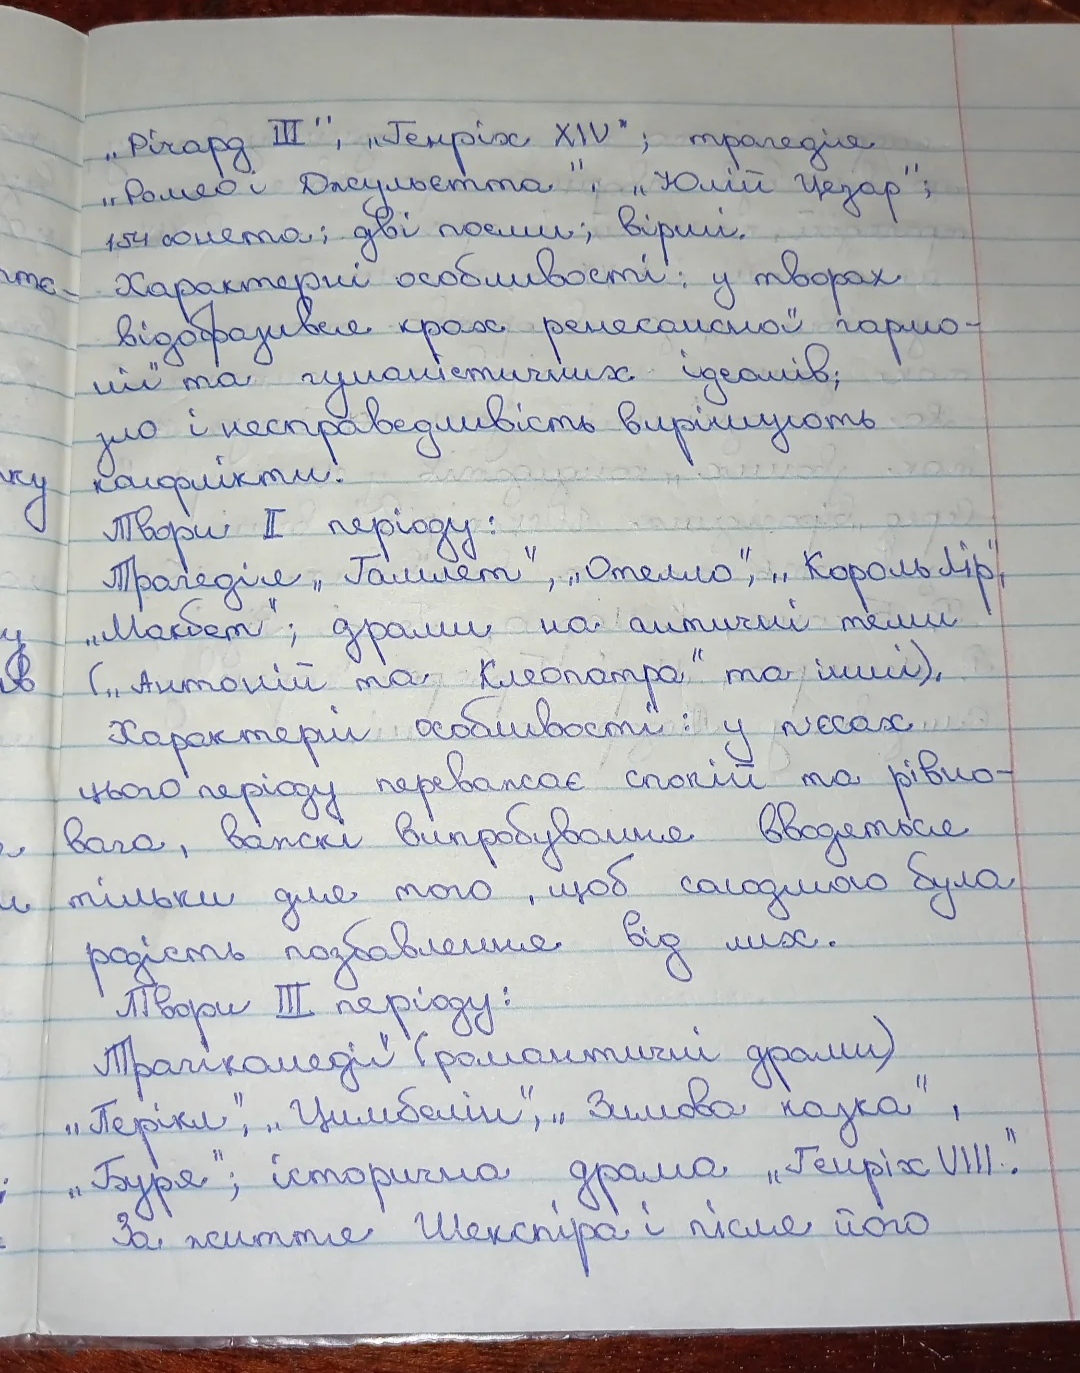 „Річард III", „Генріх XIV"; трагедія
„Ромео і Джульєтта", „Юлій Цезар";
154 сонета; дві поеми; вірші.
Характерні особливості: у творах
відобразився крах ренесансної гармо-
нії та гуманістичних ідеалів;
зло і несправедливість вирішують
конфлікти.
Твори II періоду:
Трагедія „Гамлет", „Отелло", „Король Лір",
„Макбет"; драми на античні теми
(„Антоній та Клеопатра" та інші).
Характерні особливості: у п'єсах
цього періоду переважає спокій та рівно-
вага, важкі випробування вводяться
тільки для того, щоб солодкою була
радість позбавлення від них.
Твори III періоду:
Трагікомедії (романтичні драми)
„Перікл", „Цимбелін", „Зимова казка",
„Буря"; історична драма „Генріх VIII".
За життя Шекспіра і після його